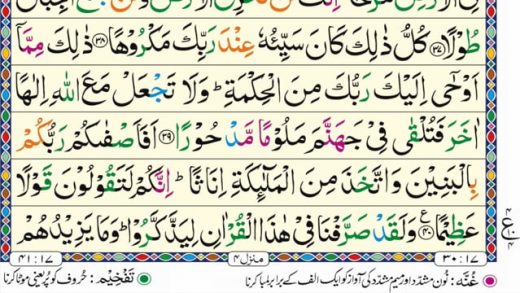 طُوۡلًا ﴿۳۷﴾ كُلُّ ذٰلِكَ كَانَ سَيِّئُهٗ عِنۡدَ رَبِّكَ مَكۡرُوۡهًا ﴿۳۸﴾ ذٰلِكَ مِمَّاۤ
اَوۡحٰۤى اِلَيۡكَ رَبُّكَ مِنَ الۡحِكۡمَةِ ؕ وَلَا تَجۡعَلۡ مَعَ اللّٰهِ اِلٰهًا
اٰخَرَ فَتُلۡقٰى فِىۡ جَهَنَّمَ مَلُوۡمًا مَّدۡحُوۡرًا ﴿۳۹﴾ اَفَاَصۡفٰٮكُمۡ رَبُّكُمۡ
بِالۡبَنِيۡنَ وَ اتَّخَذَ مِنَ الۡمَلٰۤٮِٕكَةِ اِنَاثًا ؕ اِنَّكُمۡ لَتَقُوۡلُوۡنَ قَوۡلًا
عَظِيۡمًا ﴿۴۰﴾ ع وَلَقَدۡ صَرَّفۡنَا فِىۡ هٰذَا الۡقُرۡاٰنِ لِيَذَّكَّرُوۡا ؕ وَمَا يَزِيۡدُهُمۡ
ع ۴
۳۰:۱۷ منزل ۴ ۴۱:۱۷
غُنّہ: نون مشدّد اور میم مشدّد کی آواز کو ایک الف کے برابر لمبا کرنا تَفْخِیْم: حُروف کو پُر یعنی موٹا کرنا